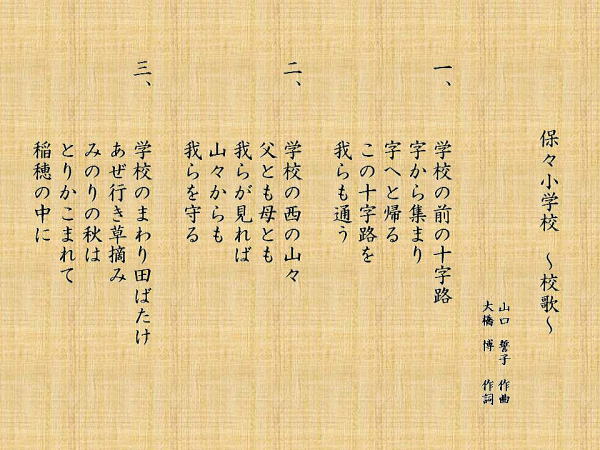 保々小学校　～校歌～
山口　誓子　作曲
大橋　博　作詞
一、
学校の前の十字路
字から集まり
字へと帰る
この十字路を
我らも通う
二、
学校の西の山々
父とも母とも
我らが見れば
山々からも
我らを守る
三、
学校のまわり田ばたけ
あぜ行き草摘み
みのりの秋は
とりかこまれて
稲穂の中に